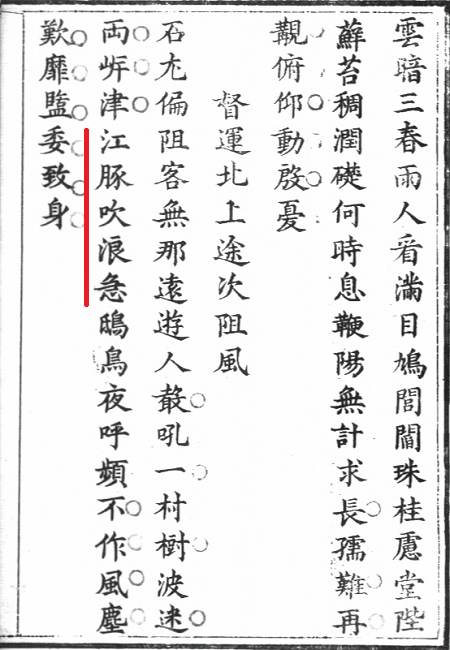 雲暗三春雨人看滿目鳩閭閻珠桂慮堂陛
蘚苔稠潤礎何時息鞭陽無計求長孺難再
覯俯仰動殷憂
督運北上途次阻風
石尤偏阻客無那遠遊人散吼一村樹波迷
兩岍津江豚吹浪急鴟鳥夜呼頻不作風塵
歎靡盬委致身